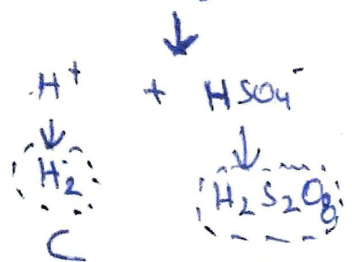 H⁺ + HSO₄⁻
H₂ H₂S₂O₈
C